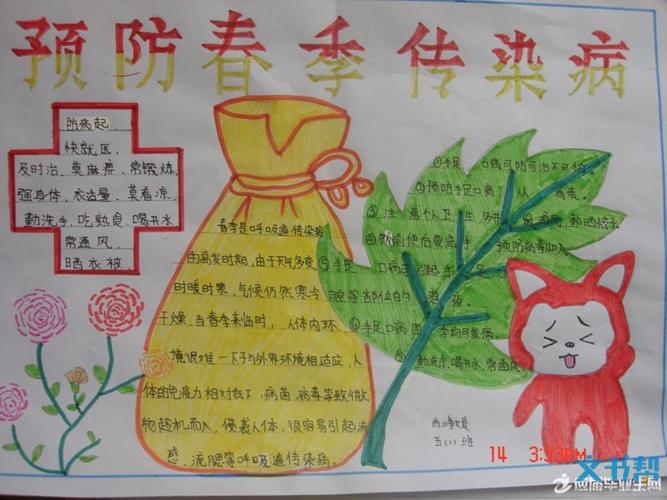 预防春季传染病
防病起
快就医
及时治、莫麻痹、常锻炼、
强身体、衣适量、莫着凉、
勤洗手、吃熟食、喝开水
常通风、
晒衣被、
春季是呼吸道传染病
由高发时期,由于天气多变
时暖时寒,气候仍然寒冷
干燥,当春季来临时,人体内环
境很难一下子与外界环境相适应,人
体的免疫力相对低下,病菌、病毒等致微
物趁机而入,侵袭人体,很容易引起流
感、流腮等呼吸道传染病。
①手足口病可防可治不可怕
②预防手足口病,从
③注意个人卫生,
勤晒被子
④饭前便后要洗手
预防病毒
⑤手足口病
手足口
腔等部位的
⑥手足口病四季均可发病。
勤洗手,喝开水,常通风。
五(1)班
14 3:33PM
文书帮
应届毕业生网